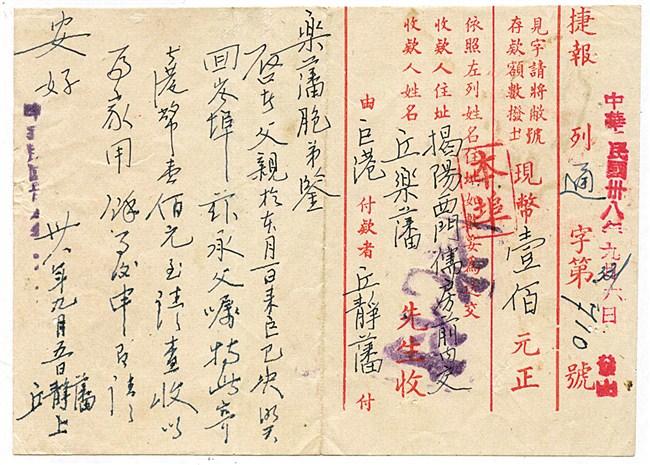 中華民國卅八年九月六日
捷報 列 通 字第 710 號
見字請將敝號
存款額數撥士
現幣壹佰元正
依照左列姓名住址如數妥為交
本埠
收款人住址 揭陽西門儒房前內交
收款人姓名 丘樂藩 先生收
由 港付款者 丘靜藩 付
樂藩胞弟鑒
啓者父親於本月一日來
回 埠 茲承父囑特此寄
港幣壹佰元至請查收以
為家用 餘事後申 請
安好
卅八年九月五日 丘靜藩上